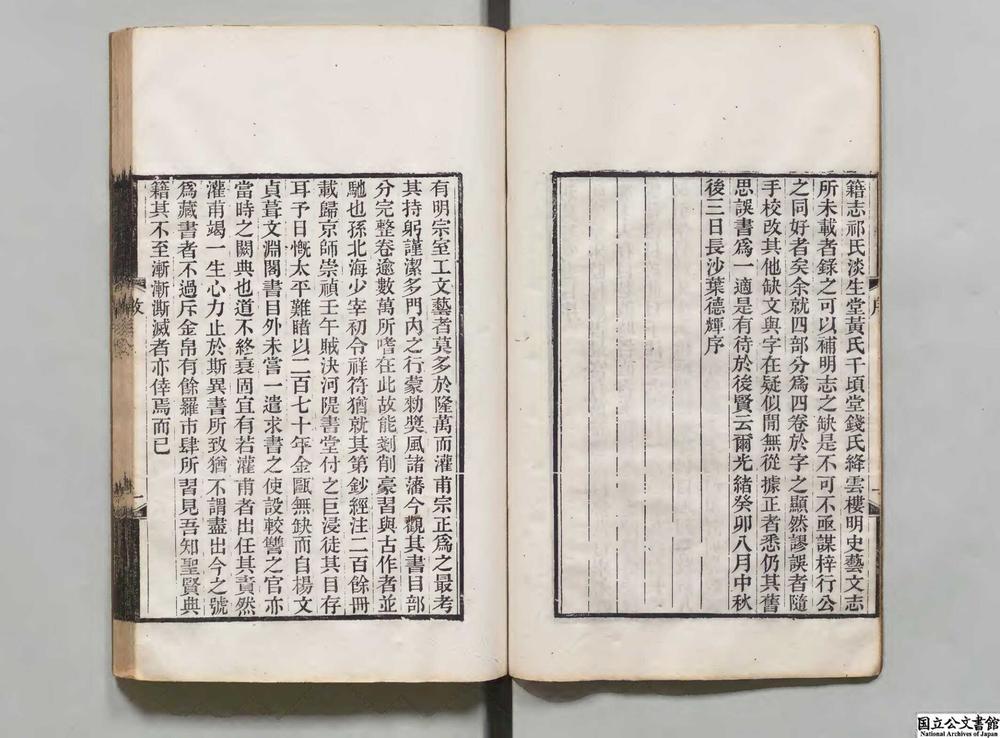 籍志祁氏淡生堂黃氏千頃堂錢氏絳雲樓明史藝文志
所未載者錄之可以補明志之缺是不可不亟謀梓行公
之同好者矣余就四部分爲四卷於字之顯然謬誤者隨
手校改其他缺文與字在疑似閒無從據正者悉仍其舊
思誤書爲一適是有待於後賢云爾光緒癸卯八月中秋
後三日長沙葉德輝序
序
一
有明宗室工文藝者莫多於隆萬而灌甫宗正爲之最考
其持躬謹潔多門內之行蒙勑獎風諸藩今觀其書目部
分完整卷逾數萬所嗜在此故能剗削豪習與古作者並
馳也孫北海少宰初令祥符猶就其第鈔經注二百餘冊
載歸京師崇禎壬午賊決河隄書堂付之巨浸徒其目存
耳予日慨太平難睹以二百七十年金甌無缺而自楊文
貞葺文淵閣書目外未嘗一遣求書之使設較讐之官亦
當時之闕典也道不終衰固宜有若灌甫者出任其責然
灌甫竭一生心力止於斯異書所致猶不謂盡出今之號
爲藏書者不過斥金帛有餘羅市肆所習見吾知聖賢典
籍其不至漸漸澌滅者亦倖焉而已
二
国立公文書館
National Archives of Japan